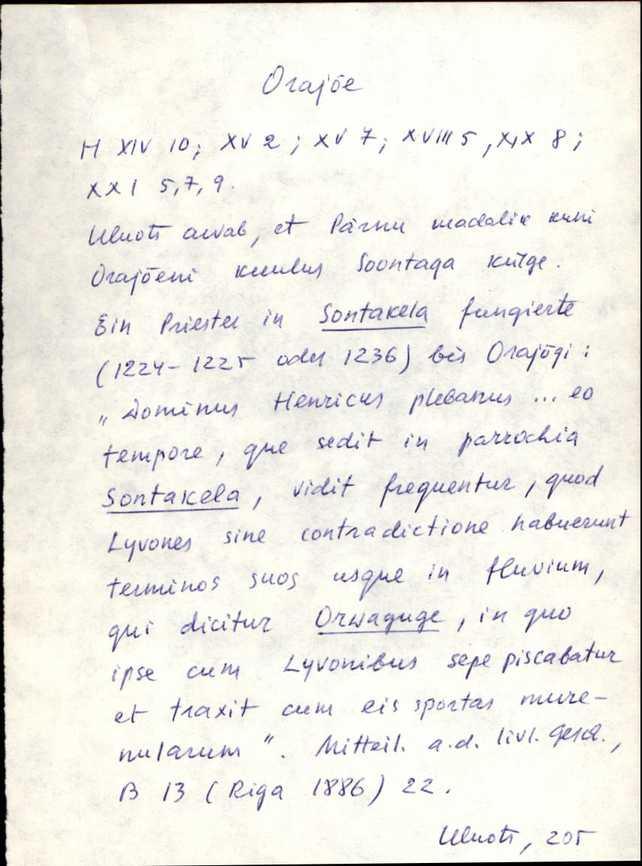 Orajõe
H XIV 10; XV 2; XV 7; XVIII 5, XIX 8;
XXI 5,7,9.
Uluots arvab, et Pärnu madalik kuni
Orajõeni kuulus Soontaga külge.
Ein Priester in Sontakela fungierte
(1224-1225 oder 1236) bis Orajõgi:
„Dominus Henricus plebanus ... eo
tempore, que sedit in parrochia
Sontakela, vidit frequentur, quod
Lyvones sine contradictione habuerunt
terminos suos usque in fluvium,
qui dicitur Orwaguge, in quo
ipse cum Lyvonibus sepe piscabatur
et traxit cum eis sportas mure-
nularum“. Mitteil. a.d. livl. Gesch.,
B 13 (Riga 1886) 22.
Uluots, 205